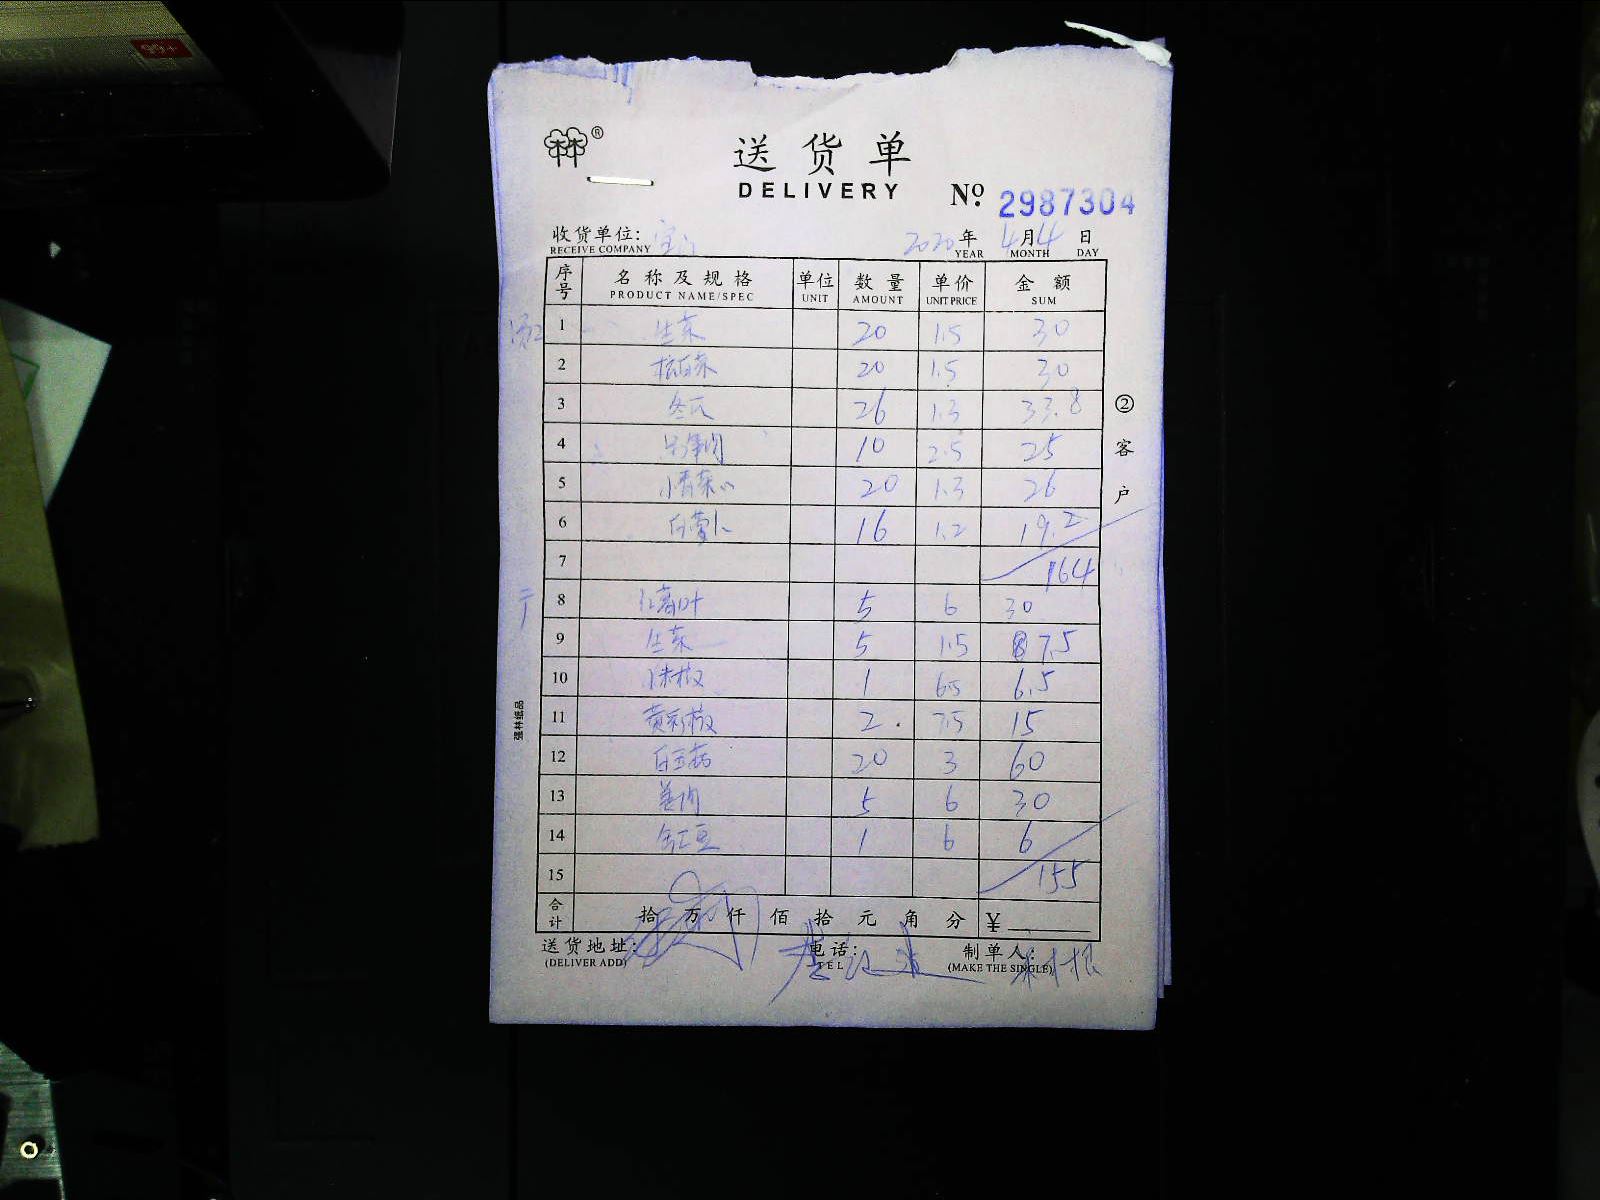 99+
®
送货单
DELIVERY
№ 2987304
收货单位: 2020年 4月4日
RECEIVE COMPANY YEAR MONTH DAY
序号 名称及规格 单位 数量 单价 金额
PRODUCT NAME/SPEC UNIT AMOUNT UNIT PRICE SUM
1 生菜 20 1.5 30
2 杭白菜 20 1.5 30
3 冬瓜 26 1.3 33.8
4 10 2.5 25
5 小青菜心 20 1.3 26
6 白萝卜 16 1.2 19.2
7 164
8 红薯叶 5 6 30
9 生菜 5 1.5 7.5
10 小米椒 1 6.5 6.5
11 黄彩椒 2 7.5 15
12 白玉菇 20 3 60
13 姜肉 5 6 30
14 豇豆 1 6 6
15 155
合计 拾 万 仟 佰 拾 元 角 分 ¥
送货地址: 电话: 制单人:
(DELIVER ADD) TEL (MAKE THE SINGLE)
②客户
强林纸品